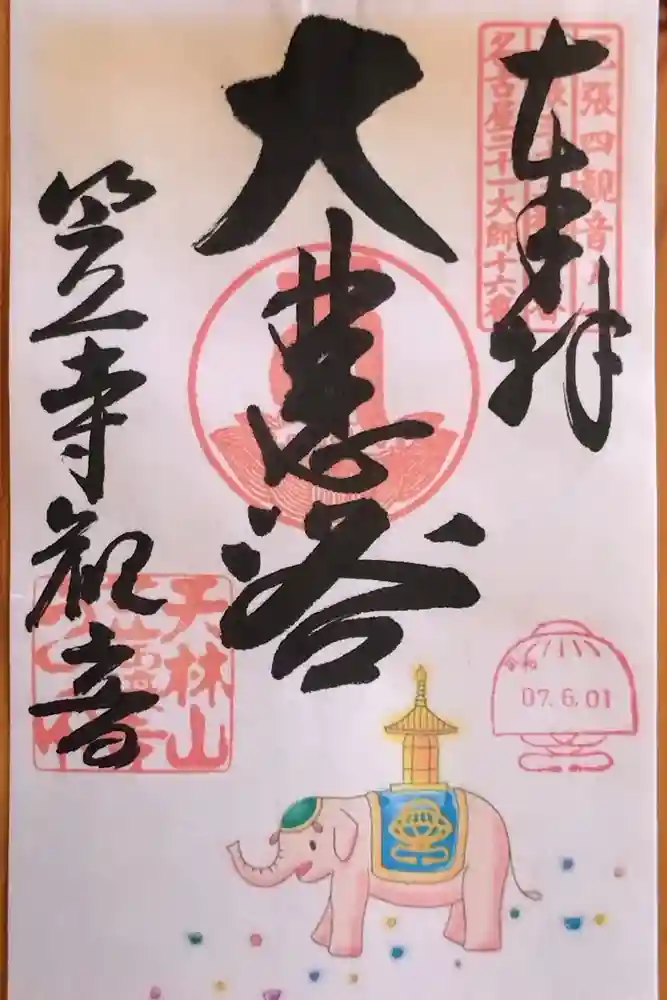 奉拝
尾張四観音
名古屋二十一大師十六番
大悲殿
笠寺観音
天林山
令和
07.6.01